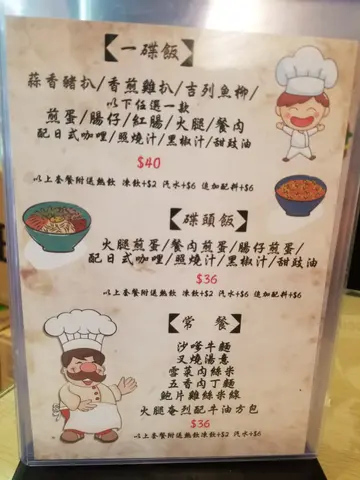 【一碟飯】
蒜香豬扒/香煎雞扒/吉列魚柳/
以下任選一款
煎蛋/腸仔/紅腸/火腿/餐肉
配日式咖喱/照燒汁/黑椒汁/甜豉油
$40
以上套餐附送熱飲 凍飲+$2 汽水+$6 追加配料+$6
【碟頭飯】
火腿煎蛋/餐肉煎蛋/腸仔煎蛋/
配日式咖喱/照燒汁/黑椒汁/甜豉油
$36
以上套餐附送熱飲 凍飲+$2 汽水+$6 追加配料+$6
【常餐】
沙嗲牛麵
叉燒湯意
雪菜肉絲米
五香肉丁麵
鮑片雞絲米線
火腿奄烈配牛油方包
$36
以上套餐附送熱飲凍飲+$2 汽水+$6